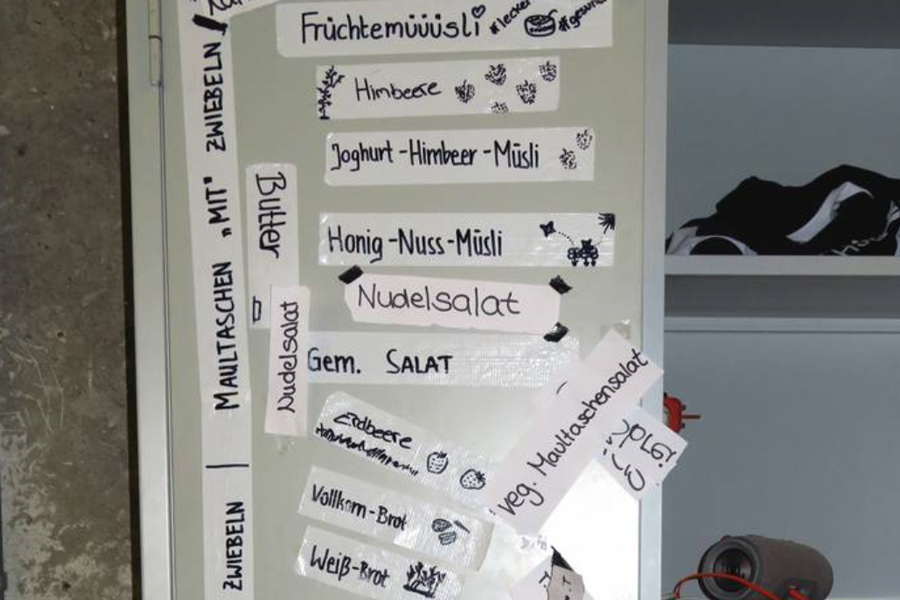 Früchtemüüüsli #lecker
Himbeere
Joghurt-Himbeer-Müsli
Honig-Nuss-Müsli
Nudelsalat
Gem. SALAT
Erdbeere
Vollkorn-Brot
Weiß-Brot
veg. Maultaschensalat
Butter
Nudelsalat
ZWIEBELN | MAULTASCHEN „MIT" ZWIEBELN